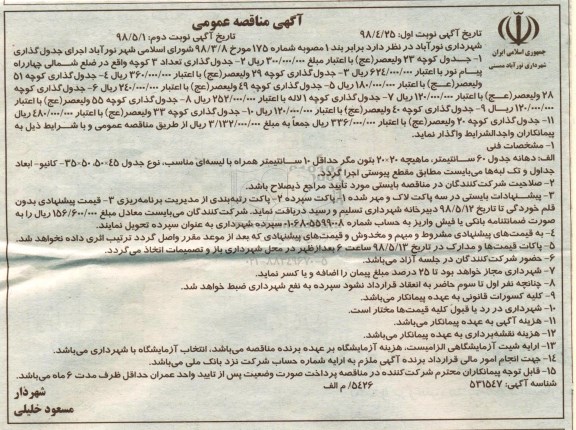 آگهی مناقصه عمومی
تاریخ آگهی نوبت اول: ۹۸/۴/۲۵ تاریخ آگهی نوبت دوم: ۹۸/۵/۱
جمهوری اسلامی ایران
شهرداری نورآباد ممسنی
شهرداری نورآباد در نظر دارد برابر بند ۱ مصوبه شماره ۱۷۵ مورخ ۹۸/۳/۸ شورای اسلامی شهر نورآباد اجرای جدول‌گذاری
۱- جدول کوچه ۲۳ ولیعصر(عج) با اعتبار مبلغ ۳۰۰/۰۰۰/۰۰۰ ریال ۲- جدول‌گذاری تعداد ۳ کوچه واقع در ضلع شمالی چهارراه
پیام نور با اعتبار ۶۲۴/۰۰۰/۰۰۰ ریال ۳- جدول‌گذاری کوچه ۲۹ ولیعصر(عج) با اعتبار ۳۶۰/۰۰۰/۰۰۰ ریال ۴- جدول‌گذاری کوچه ۵۱
ولیعصر(عج) با اعتبار ۱۸۰/۰۰۰/۰۰۰ ریال ۵- جدول‌گذاری کوچه ۴۹ ولیعصر(عج) با اعتبار ۲۴۰/۰۰۰/۰۰۰ ریال ۶- جدول‌گذاری کوچه
۲۸ ولیعصر(عج) با اعتبار ۱۲۰/۰۰۰/۰۰۰ ریال ۷- جدول‌گذاری کوچه ۱ لاله با اعتبار ۲۵۲/۰۰۰/۰۰۰ ریال ۸- جدول‌گذاری کوچه ۵۵ ولیعصر(عج) با اعتبار
۱۲۰/۰۰۰/۰۰۰ ریال ۹- جدول‌گذاری کوچه ۴۰ ولیعصر(عج) با اعتبار ۱۲۰/۰۰۰/۰۰۰ ریال ۱۰- جدول‌گذاری کوچه ۳۳ ولیعصر(عج) با اعتبار ۴۸۰/۰۰۰/۰۰۰ ریال
۱۱- جدول‌گذاری کوچه ۲۰ ولیعصر(عج) با اعتبار ۳۳۶/۰۰۰/۰۰۰ ریال جمعاً به مبلغ ۳/۱۳۲/۰۰۰/۰۰۰ ریال از طریق مناقصه عمومی و با شرایط ذیل به
پیمانکاران واجدالشرایط واگذار نماید.
۱- مشخصات فنی
الف: دهانه جدول ۶۰ سانتیمتر، ماهیچه ۲۰×۲۰ بتون مگر حداقل ۱۰ سانتیمتر همراه با لیسه‌ای مناسب، نوع جدول ۴۵-۵۰-۵۰-۳۵- کانیو- ابعاد
جداول و تک لبه‌ها می‌بایست مطابق مقطع پیوستی اجرا گردد.
۲- صلاحیت شرکت‌کنندگان در مناقصه بایستی مورد تأیید مراجع ذیصلاح باشد.
۳- پیشنهادات بایستی در سه پاکت لاک و مهر شده ۱- پاکت سپرده ۲- پاکت رتبه‌بندی از مدیریت برنامه‌ریزی ۳- قیمت پیشنهادی بدون
قلم خوردگی تا تاریخ ۹۸/۵/۱۲ دبیرخانه شهرداری تسلیم و رسید دریافت نماید. شرکت‌کنندگان می‌بایست معادل مبلغ ۱۵۶/۶۰۰/۰۰۰ ریال را به
صورت ضمانتنامه بانکی یا فیش واریز به حساب شماره ۰۱۰۶۸۰۵۵۹۹۰۰۸ سپرده شهرداری به عنوان سپرده تحویل نمایند.
۴- به قیمت‌های پیشنهادی مشروط و مبهم و مخدوش و قیمت‌های پیشنهادی که بعد از موعد مقرر واصل گردد ترتیب اثری داده نخواهد شد.
۵- پاکات قیمت‌ها و مدارک در تاریخ ۹۸/۵/۱۳ ساعت ۶ بعدازظهر در محل شهرداری باز و تصمیمات اتخاذ می‌گردد.
۶- حضور شرکت‌کنندگان در جلسه آزاد می‌باشد.
۷- شهرداری مجاز خواهد بود تا ۲۵ درصد مبلغ پیمان را اضافه و یا کسر نماید.
۸- چنانچه نفر اول تا سوم حاضر به انعقاد قرارداد نشود سپرده به نفع شهرداری ضبط خواهد شد.
۹- کلیه کسورات قانونی به عهده پیمانکار می‌باشد.
۱۰- شهرداری در رد یا قبول کلیه قیمت‌ها مختار است.
۱۱- هزینه آگهی به عهده پیمانکار می‌باشد.
۱۲- هزینه نقشه‌برداری به عهده پیمانکار می‌باشد.
۱۳- ارایه شیت آزمایشگاهی الزامیست، هزینه آزمایشگاه بر عهده برنده مناقصه می‌باشد، انتخاب آزمایشگاه با شهرداری می‌باشد.
۱۴- جهت انجام امور مالی قرارداد برنده آگهی ملزم به ارایه شماره حساب شرکت نزد بانک ملی می‌باشد.
۱۵- قابل توجه پیمانکاران محترم شرکت‌کننده در مناقصه پرداخت صورت وضعیت پس از تایید واحد عمران حداقل ظرف مدت ۶ ماه می‌باشد.
شناسه آگهی: ۵۳۱۵۴۷ ۵۴۲۶/ م الف
شهردار
مسعود خلیلی